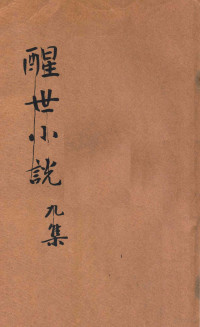 醒世小説
九集